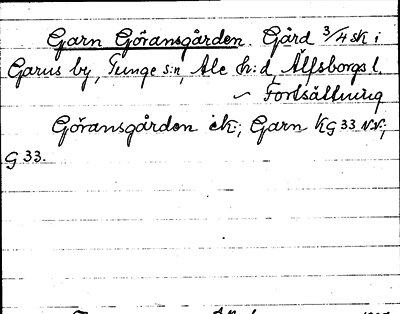 Garn Göransgården. Gård 3/4 sk i
Garns by, Tunge s:n, Ale h:d, Älfsborgs l.
~ Fortsättning
Göransgården ek:, Garn KG 33 NN:,
G 33.